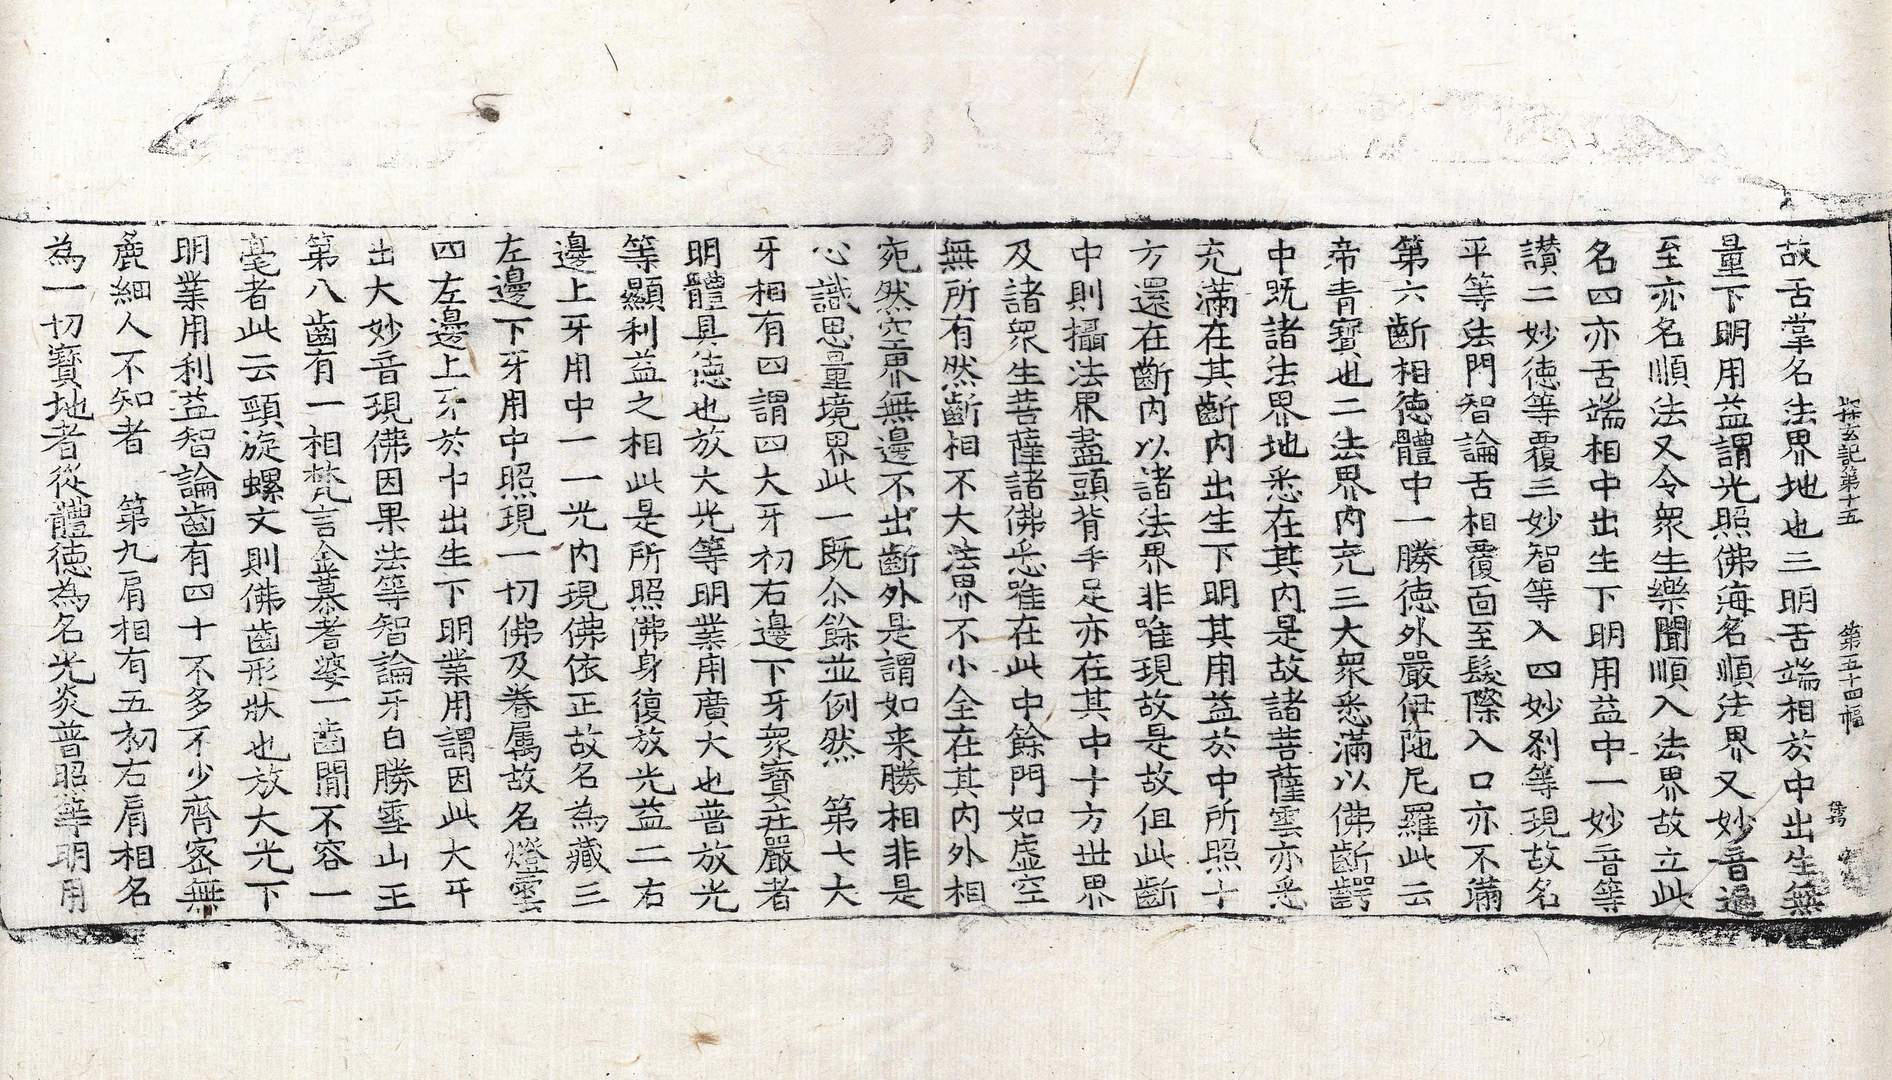 探玄記第十五　第五十四幅
故舌掌名法界地也三明舌端相於中出生無
量下明用益謂光照佛海名順法界又妙音遍
至亦名順法又令衆生樂聞順入法界故立此
名四亦舌端相中出生下明用益中一妙音等
讃二妙德等覆三妙智等入四妙刹等現故名
平等法門智論舌相覆面至髮際入口亦不滿
第六齗相德體中一勝德外嚴伊陁尼羅此云
帝青寶也二法界內充三大衆悉滿以佛齗齶
中旣諸法界地悉在其內是故諸菩薩雲亦悉
充滿在其齗內出生下明其用益於中所照十
方還在齗內以諸法界非唯現故是故但此齗
中則攝法界盡頭背手足亦在其中十方世界
及諸衆生菩薩諸佛悉唯在此中餘門如虛空
無所有然齗相不大法界不小全在其內外相
宛然空界無邊不出齗外是謂如来勝相非是
心識思量境界此一旣尒餘並例然　第七大
牙相有四謂四大牙初右邊下牙衆寶莊嚴者
明體具德也放大光等明業用廣大也普放光
等顯利益之相此是所照佛身復放光益二右
邊上牙用中一一光內現佛依正故名為藏三
左邊下牙用中照現一切佛及眷屬故名燈雲
四左邊上牙於中出生下明業用謂因此大牙
出大妙音現佛因果法等智論牙白勝雪山王
第八齒有一相梵言金慕耆婆一齒間不容一
毫者此云頸旋螺文則佛齒形狀也放大光下
明業用利益智論齒有四十不多不少齊密無
麁細人不知者　第九肩相有五初右肩相名
為一切寶地者從體德為名光炎普照等明用